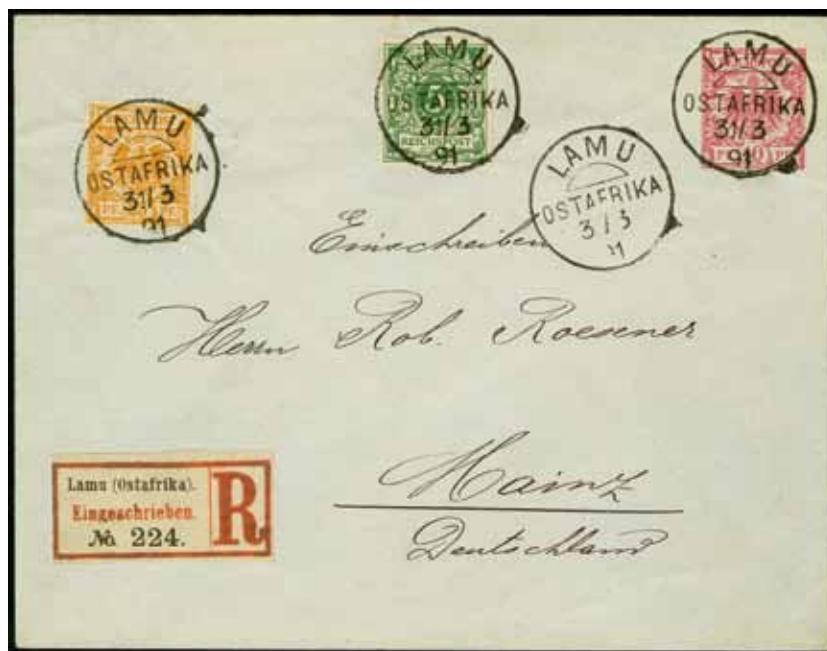 LAMU
OSTAFRIKA
31/3
91
LAMU
OSTAFRIKA
31/3
91
REICHSPOST
LAMU
OSTAFRIKA
31/3
91
10
LAMU
OSTAFRIKA
3/3
Einschreiben
Herrn Rob. Roesener
Mainz
Deutschland
Lamu (Ostafrika).
Eingeschrieben.
№ 224.
R